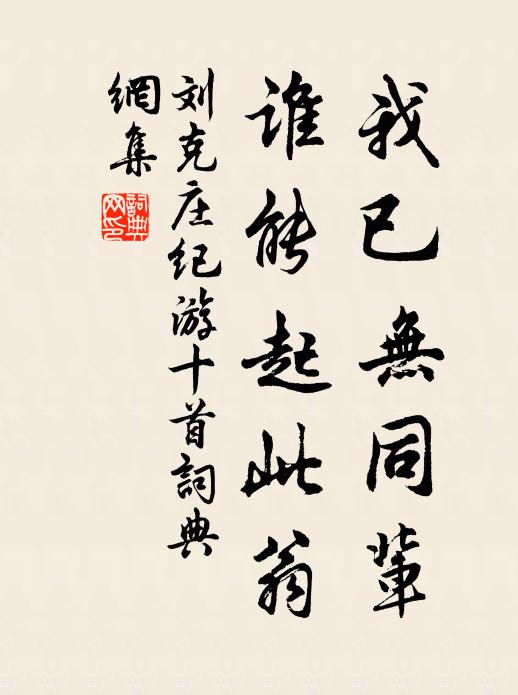 我已無同輩
誰能起此翁
刘克庄纪游十首詞典
網集
詞典
网印